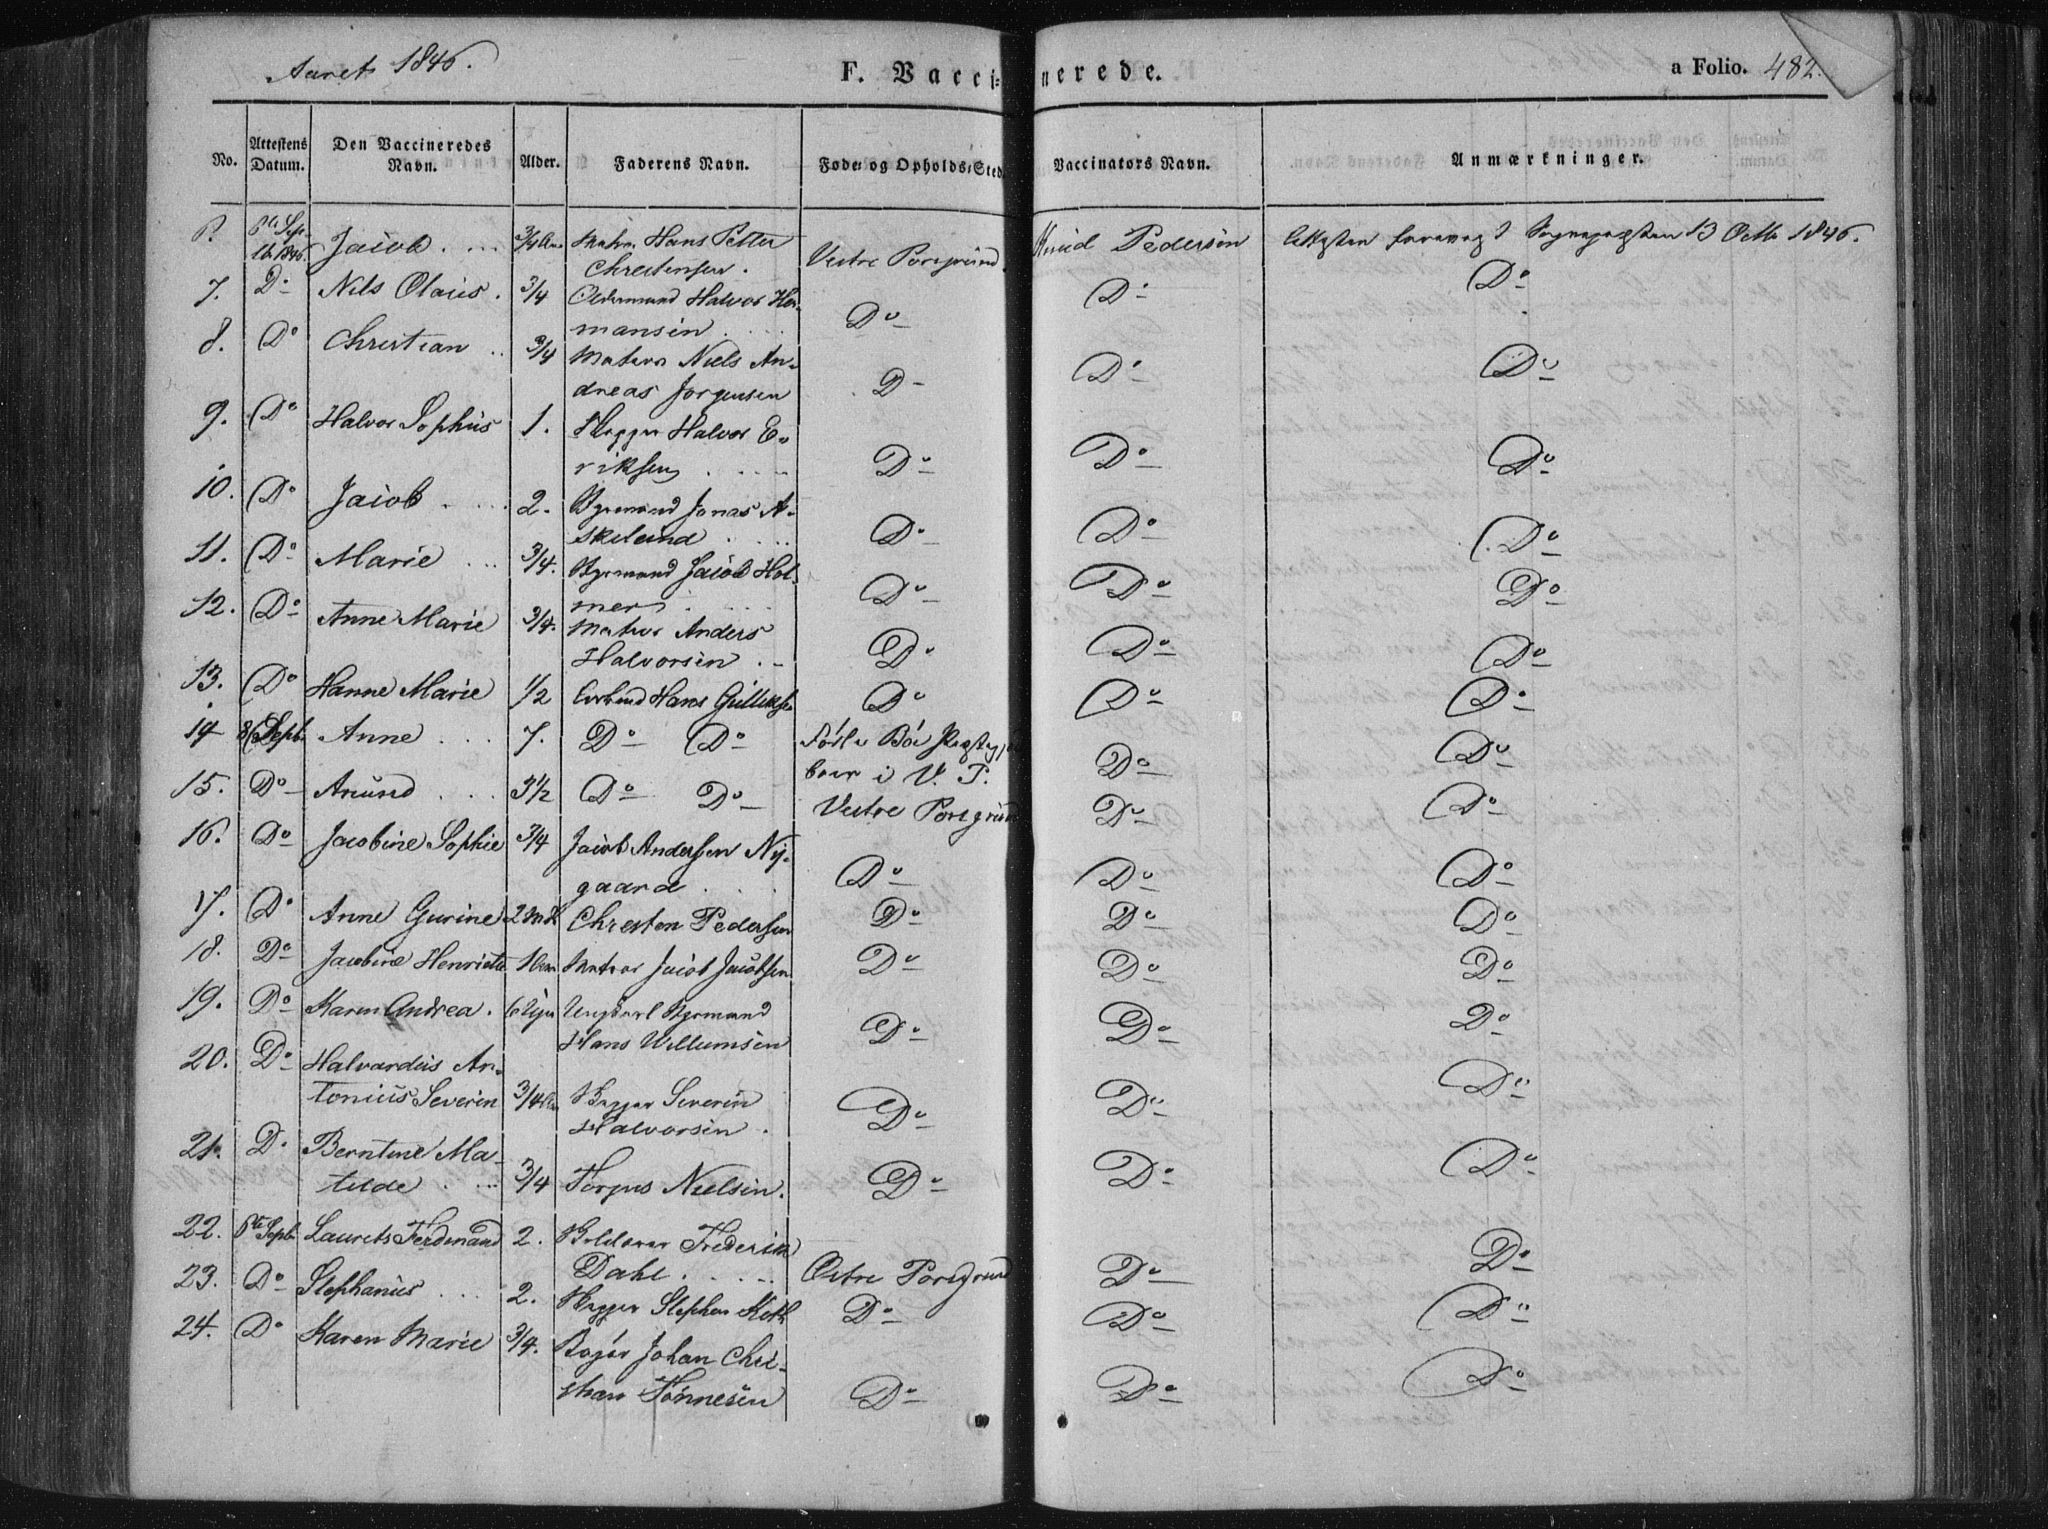 Aaret 1846.
F. Vaccinerede.
a Folio. 482.
No. Attestens Datum. Den Vaccineredes Navn. Alder. Faderens Navn. Føde- og Opholds-Sted Vaccinators Navn. Anmærkninger.
6. 6te Sep. 1846. Jacob 3/4 Aar Matros Hans Petter Vestre Porsgrund Knud Pedersen Attesten 13 Octbr 1846.
Christensen.
7. Do Nils Olaus. 3/4 Oldermand Halvor Her- Do Do Do
mansen
8. Do Christian 3/4 Matros Niels An- Do Do Do
dreas Jørgensen
9. Do Halvor Sophus 1. Halvor E- Do Do Do
riksen
10. Do Jacob 2. Styrmand Jonas A- Do Do Do
skeland
11. Do Marie 3/4. Styrmand Jacob Hol- Do Do Do
mer
12. Do Anne Marie 3/4. Matros Anders Do Do Do
Halvorsen
13. Do Hanne Marie 1/2 Hans Gulliksen Do Do Do
14 8 Septb. Anne 7. Do Do Født i Bø Do Do
i V. P.
15. Do Amund 3 1/2 Do Do Vestre Porsgrund Do Do
16. Do Jacobine Sophie 3/4 Jacob Andersen Ny- Do Do Do
gaard
17. Do Anne Gurine 2 Chresten Pedersen Do Do Do
18. Do Jacobine Henriette 1 Aar Matros Jacob Jacobsen Do Do Do
19. Do Karen Andrea. 6 Uger Ungkarl Styrmand Do Do Do
Hans Willumsen
20. Do Halvardus An-
tonius Severin 3/4 Aar Severin Do Do Do
Halvorsen.
21. Do Berntine Ma-
tilde 3/4 Torgus Nielsen. Do Do Do
22. 6te Septb Laurits Ferdinand 2. Frederik
Dahl Østre Porsgrund Do Do
23. Do Stephanus 2. Stephen Do Do Do
24. Do Karen Marie 3/4. Johan Chri-
stian Tønnesen Do Do Do